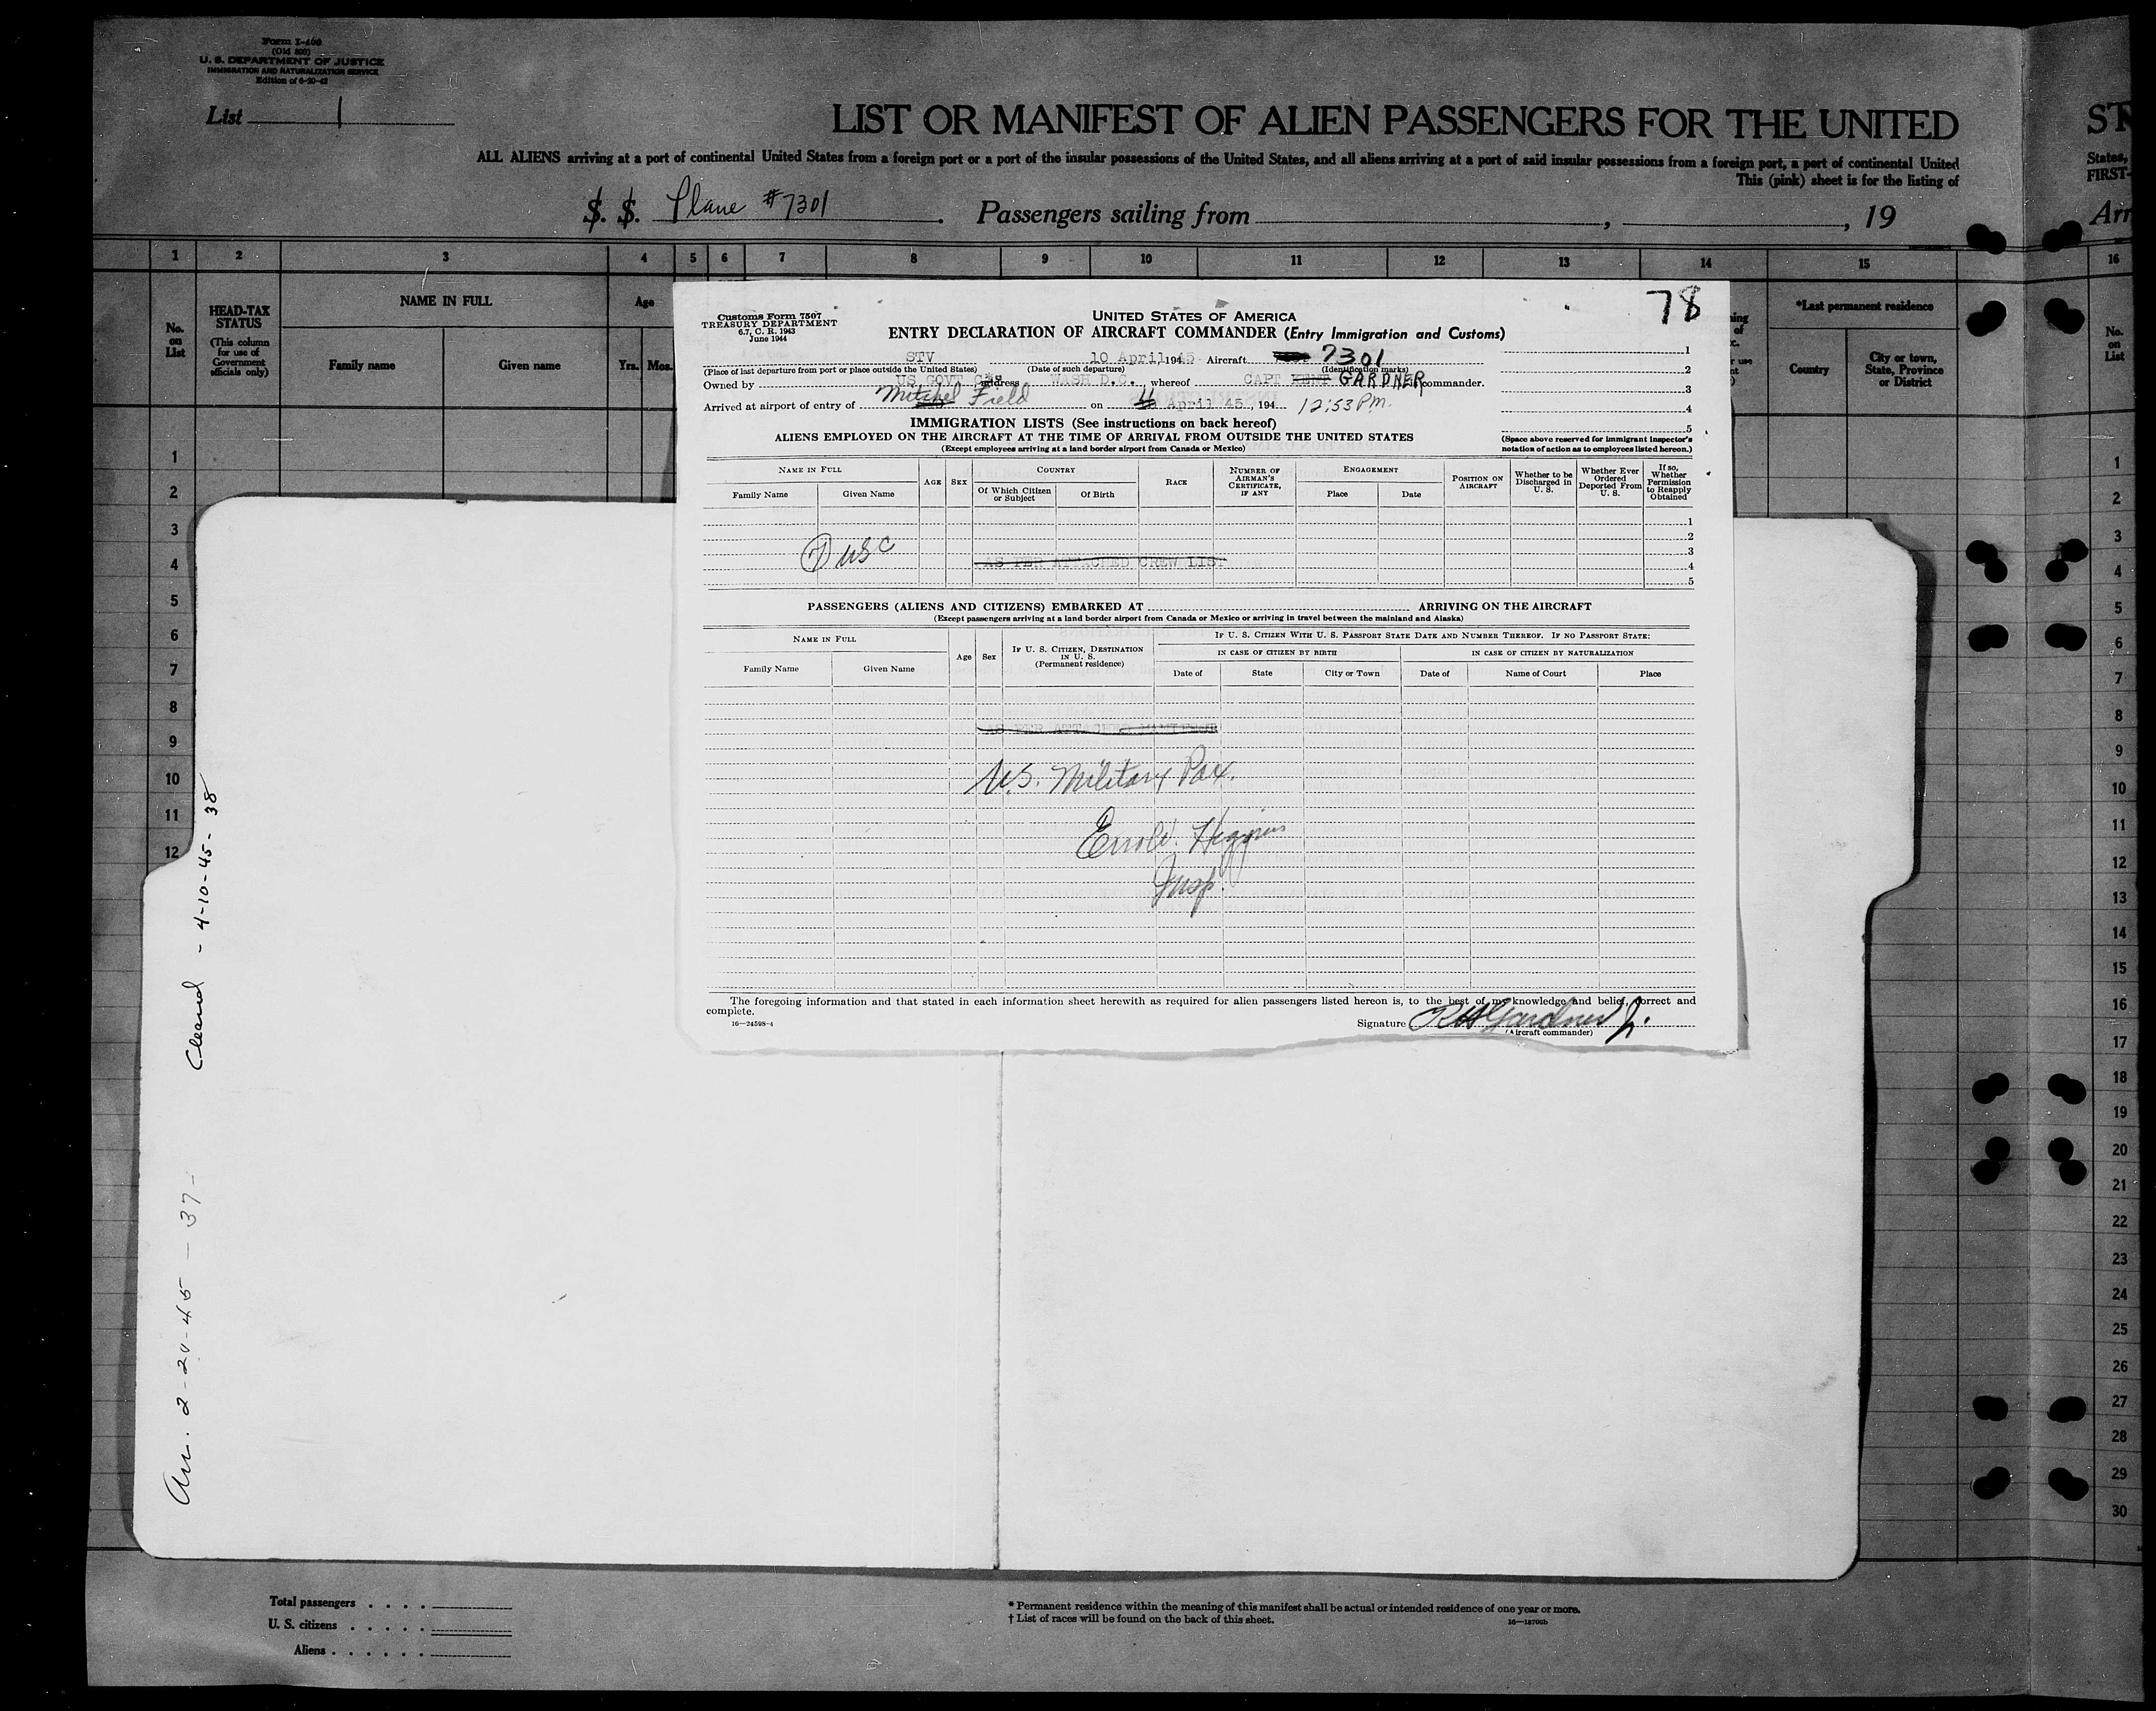 Form I-400
(Old 500)
U. S. DEPARTMENT OF JUSTICE
IMMIGRATION AND NATURALIZATION SERVICE
Edition of 6-20-42
List 1
LIST OR MANIFEST OF ALIEN PASSENGERS FOR THE UNITED
ST
ALL ALIENS arriving at a port of continental United States from a foreign port or a port of the insular possessions of the United States, and all aliens arriving at a port of said insular possessions from a foreign port, a port of continental United
States,
This (pink) sheet is for the listing of
FIRST-
S. S. Plane #7301 . Passengers sailing from , , 19
Arr
1 2 3 4 5 6 7 8 9 10 11 12 13 14 15 16
No. on List
HEAD-TAX STATUS
(This column for use of Government officials only)
NAME IN FULL
Family name Given name
Age
Yrs. Mos.
*Last permanent residence
Country
City or town, State, Province or District
No. on List
78
Customs Form 7507
TREASURY DEPARTMENT
6.7, C. R. 1943
June 1944
UNITED STATES OF AMERICA
ENTRY DECLARATION OF AIRCRAFT COMMANDER (Entry Immigration and Customs)
STV 10 April, 1945 Aircraft 7301
(Place of last departure from port or place outside the United States) (Date of such departure) (Identification marks)
Owned by US GOVT address WASH D.C. , whereof CAPT KENT GARDNER commander.
Arrived at airport of entry of Mitchel Field on 11 April 45, 194 12:53 P.M.
1
2
3
4
5
(Space above reserved for immigrant inspector's notation of action as to employees listed hereon.)
IMMIGRATION LISTS (See instructions on back hereof)
ALIENS EMPLOYED ON THE AIRCRAFT AT THE TIME OF ARRIVAL FROM OUTSIDE THE UNITED STATES
(Except employees arriving at a land border airport from Canada or Mexico)
NAME IN FULL
Family Name Given Name
AGE SEX
COUNTRY
Of Which Citizen or Subject Of Birth
RACE
NUMBER OF AIRMAN'S CERTIFICATE, IF ANY
ENGAGEMENT
Place Date
POSITION ON AIRCRAFT
Whether to be Discharged in U. S.
Whether Ever Ordered Deported From U. S.
If so, Whether Permission to Reapply Obtained
1
2
3
4
5
7 USC
AS PER ATTACHED CREW LIST
PASSENGERS (ALIENS AND CITIZENS) EMBARKED AT ARRIVING ON THE AIRCRAFT
(Except passengers arriving at a land border airport from Canada or Mexico or arriving in travel between the mainland and Alaska)
NAME IN FULL
Family Name Given Name
Age Sex
IF U. S. CITIZEN, DESTINATION IN U. S.
(Permanent residence)
IF U. S. CITIZEN WITH U. S. PASSPORT STATE DATE AND NUMBER THEREOF. IF NO PASSPORT STATE:
IN CASE OF CITIZEN BY BIRTH IN CASE OF CITIZEN BY NATURALIZATION
Date of State City or Town Date of Name of Court Place
AS PER ATTACHED MANIFEST
U.S. Military Pax.
Errol Higgins
Insp.
The foregoing information and that stated in each information sheet herewith as required for alien passengers listed hereon is, to the best of my knowledge and belief, correct and
complete.
16—24598-4
Signature R H Gardner Jr.
(Aircraft commander)
1
2
3
4
5
6
7
8
9
10
11
12
Cleared - 4-10-45- 38
Arr. 2-20-45 - 37-
1
2
3
4
5
6
7
8
9
10
11
12
13
14
15
16
17
18
19
20
21
22
23
24
25
26
27
28
29
30
Total passengers . . . .
U. S. citizens . . . . .
Aliens . . . . . .
* Permanent residence within the meaning of this manifest shall be actual or intended residence of one year or more.
† List of races will be found on the back of this sheet.